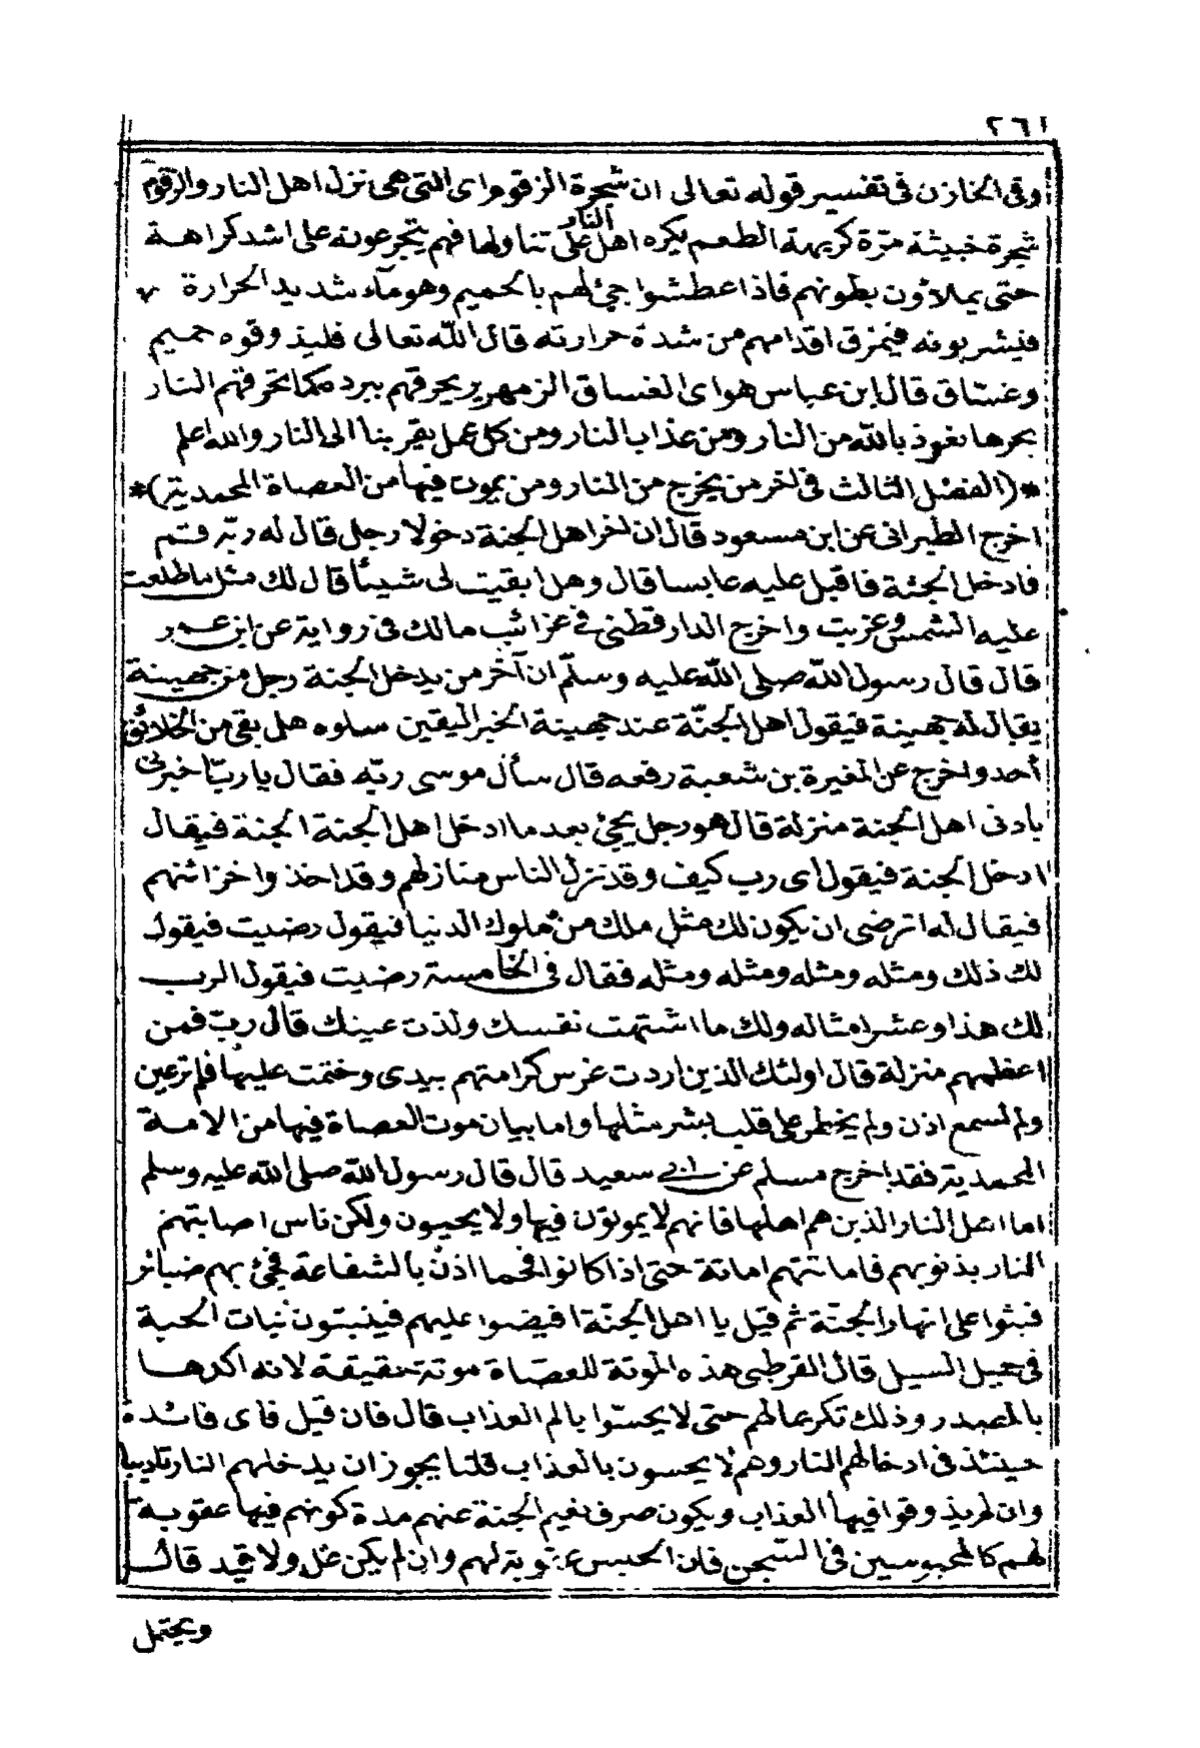 ٢٦١
وفى الخازن فى تفسير قوله تعالى ان شجرة الزقوم اى التى هى نزل اهل النار والزقوم
شجرة خبيثة مرّة كريهة الطعم يكره اهل النار على تناولها فهم يتجرعونه على اشد كراهة
حتى يملاؤن بطونهم فاذا عطشوا جئ لهم بالحميم وهو مآء شديد الحرارة
فيشربونه فيمزق اقدامهم من شدة حرارته قال الله تعالى فليذوقوه حميم
وغسّاق قال ابن عباس هو اى الغساق الزمهرير يحرقهم ببرده كما تحرقهم النار
بحرها نعوذ بالله من النار ومن عذاب النار ومن كل عمل يقربنا الى النار والله اعلم
*(الفصل الثالث فى اخر من يخرج من النار ومن يموت فيها من العصاة المحمدية)*
اخرج الطبرانى عن ابن مسعود قال ان اخر اهل الجنة دخولا رجل قال له ربّه قم
فادخل الجنة فاقبل عليه عابسا قال وهل ابقيت لى شيئا قال لك مثل ما طلعت
عليه الشمس وغربت واخرج الدارقطنى فى غرائب مالك فى رواية عن ابن عمر
قال قال رسول الله صلى الله عليه وسلّم ان آخر من يدخل الجنة رجل من جهينة
يقال له جهينة فيقول اهل الجنّة عند جهينة الخبر اليقين سلوه هل بقى من الخلائق
أحد واخرج عن المغيرة بن شعبة رفعه قال سأل موسى ربّه فقال يا ربّ اخبرنى
بادنى اهل الجنة منزلة قال هو رجل يجئ بعد ما ادخل اهل الجنة الجنة فيقال
ادخل الجنة فيقول اى رب كيف وقد نزل الناس منازلهم وقد اخذوا خزائنهم
فيقال له اترضى ان يكون لك مثل ملك من ملوك الدنيا فيقول رضيت فيقول
لك ذلك ومثله ومثله ومثله ومثله فقال فى الخامسة رضيت فيقول الرب
لك هذا وعشر امثاله ولك ما اشتهت نفسك ولذت عينك قال ربّ فمن
اعظمهم منزلة قال اولئك الذين اردت غرس كرامتهم بيدى وختمت عليها فلم ترعين
ولم تسمع اذن ولم يخطر على قلب بشر مثلها واما بيان موت العصاة فيها من الامة
المحمدية فقد اخرج مسلم عن ابى سعيد قال قال رسول الله صلى الله عليه وسلم
اما اهل النار الذين هم اهلها فانهم لا يموتون فيها ولا يحيون ولكن ناس اصابتهم
النار بذنوبهم فاماتتهم اماتة حتى اذا كانوا فحما اذن بالشفاعة فجئ بهم ضبائر
فبثوا على انهار الجنّة ثم قيل يا اهل الجنّة افيضوا عليهم فينبتون نبات الحبة
فى حميل السيل قال القرطبى هذه الموتة للعصاة موتة حقيقة لانه اكدها
بالمصدر وذلك تكريما لهم حتى لا يحسّوا بالم العذاب قال فان قيل فاى فائدة
حينئذ فى ادخالهم النار وهم لا يحسون بالعذاب قلنا يجوز ان يدخلهم النار تاديبا
وان لم يذوقوا فيها العذاب ويكون صرف نعيم الجنة عنهم مدة كونهم فيها عقوبة
لهم كالمحبوسين فى السّجن فان الحبس عقوبة لهم وان لم يكن غل ولا قيد قال
ويحتمل